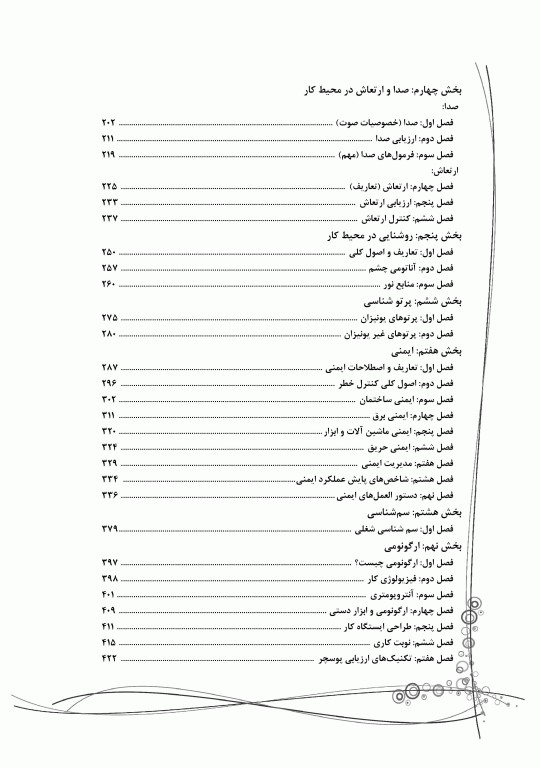 بخش چهارم: صدا و ارتعاش در محیط کار
صدا:
فصل اول: صدا (خصوصیات صوت) ........ ۲۰۲
فصل دوم: ارزیابی صدا ........ ۲۱۱
فصل سوم: فرمول‌های صدا (مهم) ........ ۲۱۹
ارتعاش:
فصل چهارم: ارتعاش (تعاریف) ........ ۲۲۵
فصل پنجم: ارزیابی ارتعاش ........ ۲۳۳
فصل ششم: کنترل ارتعاش ........ ۲۳۷
بخش پنجم: روشنایی در محیط کار
فصل اول: تعاریف و اصول کلی ........ ۲۵۰
فصل دوم: آناتومی چشم ........ ۲۵۷
فصل سوم: منابع نور ........ ۲۶۰
بخش ششم: پرتو شناسی
فصل اول: پرتوهای یونیزان ........ ۲۷۵
فصل دوم: پرتوهای غیر یونیزان ........ ۲۸۰
بخش هفتم: ایمنی
فصل اول: تعاریف و اصطلاحات ایمنی ........ ۲۸۷
فصل دوم: اصول کلی کنترل خطر ........ ۲۹۶
فصل سوم: ایمنی ساختمان ........ ۳۰۲
فصل چهارم: ایمنی برق ........ ۳۱۱
فصل پنجم: ایمنی ماشین آلات و ابزار ........ ۳۲۰
فصل ششم: ایمنی حریق ........ ۳۲۴
فصل هفتم: مدیریت ایمنی ........ ۳۲۹
فصل هشتم: شاخص‌های پایش عملکرد ایمنی ........ ۳۳۴
فصل نهم: دستور العمل‌های ایمنی ........ ۳۳۶
بخش هشتم: سم‌شناسی
فصل اول: سم شناسی شغلی ........ ۳۷۹
بخش نهم: ارگونومی
فصل اول: ارگونومی چیست؟ ........ ۳۹۷
فصل دوم: فیزیولوژی کار ........ ۳۹۸
فصل سوم: آنتروپومتری ........ ۴۰۱
فصل چهارم: ارگونومی و ابزار دستی ........ ۴۰۹
فصل پنجم: طراحی ایستگاه کار ........ ۴۱۱
فصل ششم: نوبت کاری ........ ۴۱۵
فصل هفتم: تکنیک‌های ارزیابی پوسچر ........ ۴۲۲